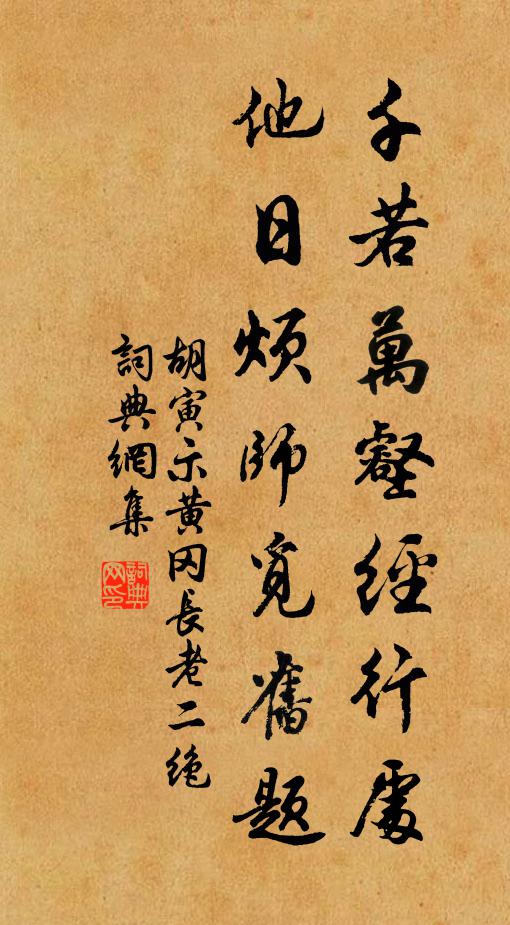 千若萬壑經行處
他日煩師覓舊題
胡寅示黃冈長老二绝
詞典網集
詞典网印